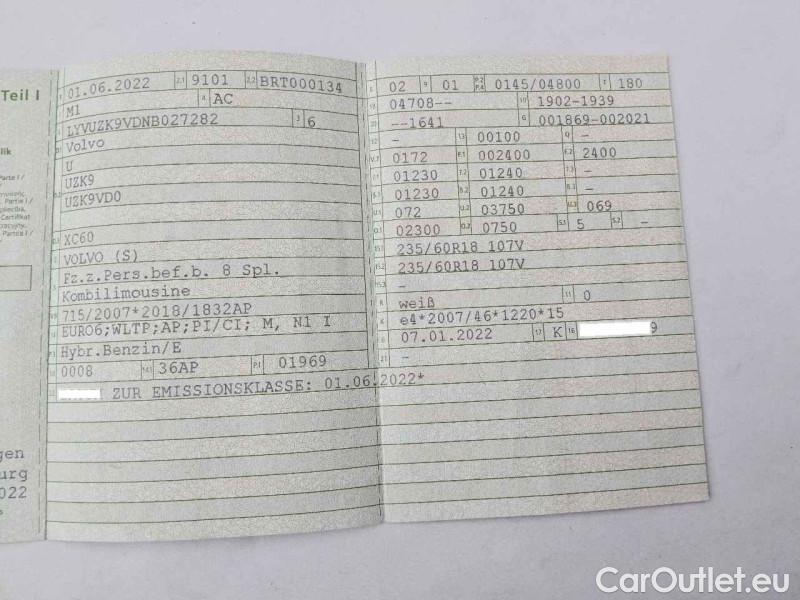 Teil I
01.06.2022 2.1 9101 2.2 BRT000134
M1 4 AC
LYVUZK9VDNB027282 3 6
Volvo
U
UZK9
UZK9VD0
XC60
VOLVO (S)
Fz.z.Pers.bef.b. 8 Spl.
Kombilimousine
715/2007*2018/1832AP
EURO6;WLTP;AP;PI/CI; M, N1 I
Hybr.Benzin/E
10 0008 14.1 36AP P.1 01969
22 ZUR EMISSIONSKLASSE: 01.06.2022*
L 02 9 01 P.2 P.4 0145/04800 T 180
18 04708-- 19 1902-1939
20 --1641 G 001869-002021
12 - 13 00100 Q -
V.7 0172 F.1 002400 F.2 2400
7.1 01230 7.2 01240 7.3 -
8.1 01230 8.2 01240 8.3 -
U.1 072 U.2 03750 U.3 069
O.1 02300 O.2 0750 S.1 5 S.2 -
15.1 235/60R18 107V
15.2 235/60R18 107V
15.3 -
R weiß 11 0
K e4*2007/46*1220*15
6 07.01.2022 17 K 16 9
21 -
lik
Parte I /
Partie I /
Certifikat
Parte I /
gen
urg
022
CarOutlet.eu